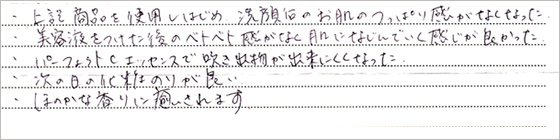 ・上記商品を使用しはじめ 洗顔后のお肌のつっぱり感がなくなった
・美容液をつけた後のベトベト感がなく肌になじんでいく感じが良かった
・パーフェクトCエッセンスで吹き出物が出来にくくなった
・次の日の化粧のりが良い
・ほのかな香りに癒されます